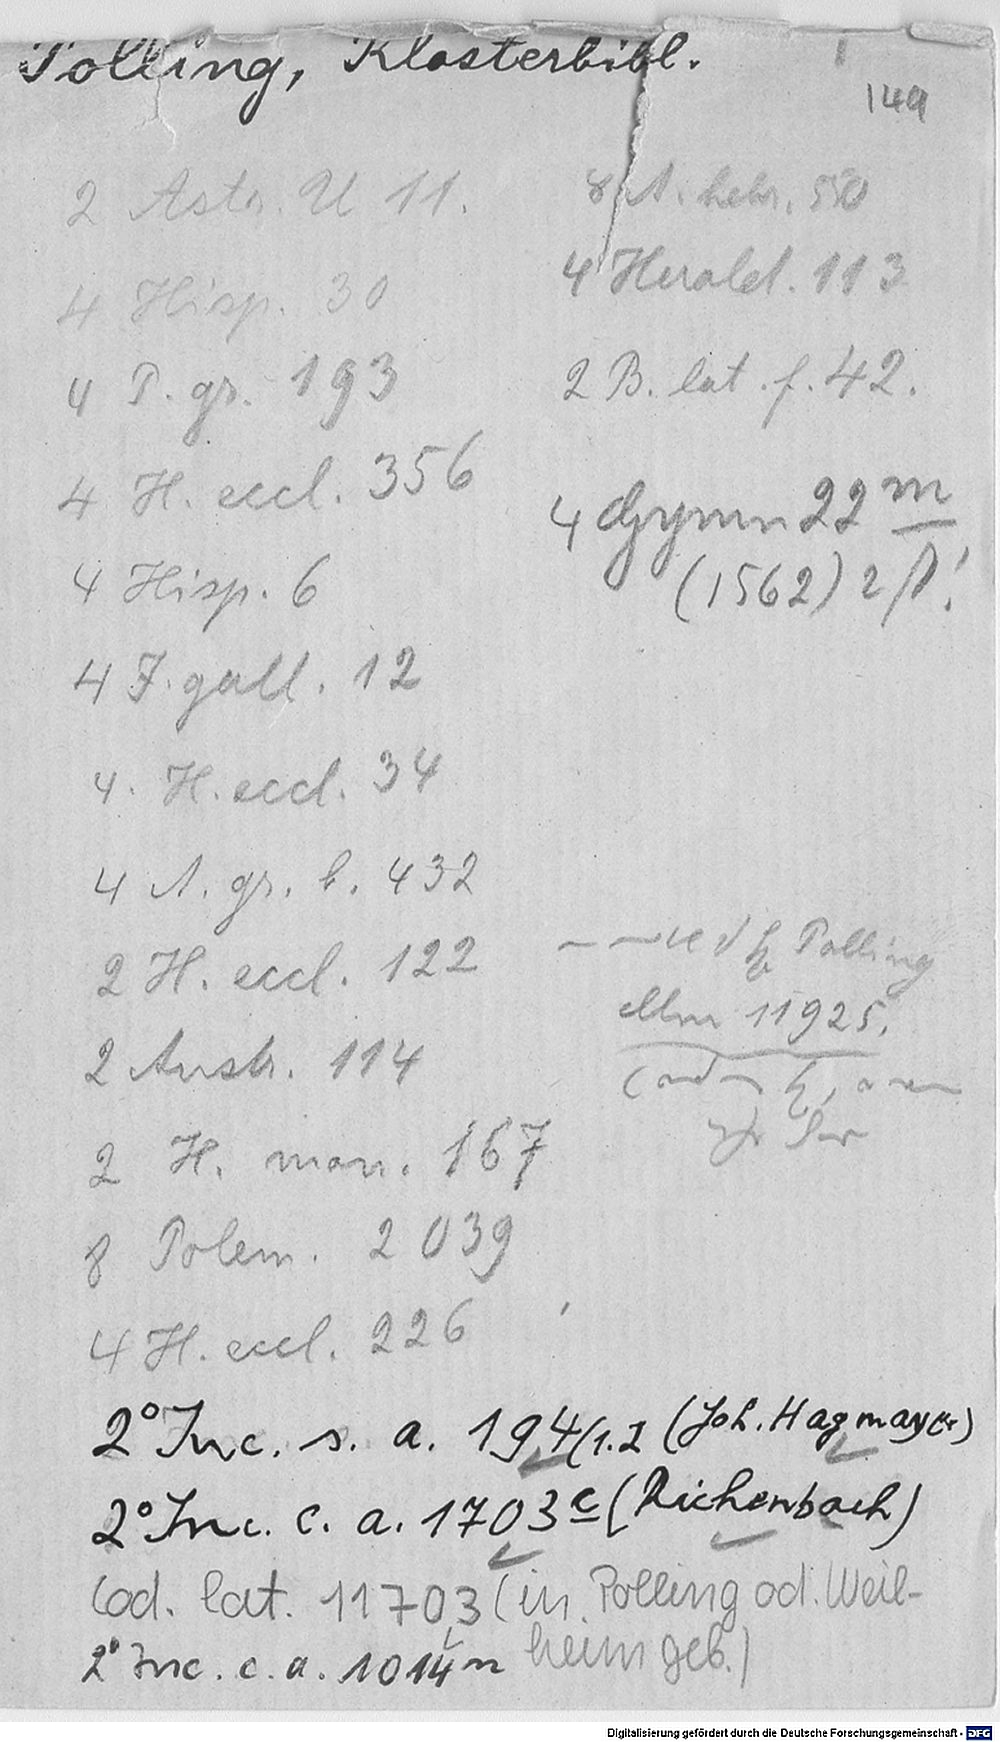 Polling, Klosterbibl.
149
2 Astr. U 11.
4 Hisp. 30
4 P. gr. 193
4 H. eccl. 356
4 Hisp. 6
4 J. gall. 12
4. H. eccl. 34
4 A. gr. b. 432
2 H. eccl. 122
2 Austr. 114
2 H. mon. 167
8 Polem. 2039
4 H. eccl. 226
8 A. hebr. 550
4 Herald. 113
2 B. lat. f. 42.
4 Gymn 22 m
(1562) 2
Polling
Clm 11925.
2° Inc. s. a. 194/1.2 (Joh. Hagmayer)
2° Inc. c. a. 1703 c (Richenbach)
Cod. lat. 11703 (in Polling od. Weil-
heim geb.)
2° Inc. c. a. 1014 m
Digitalisierung gefördert durch die Deutsche Forschungsgemeinschaft - DFG